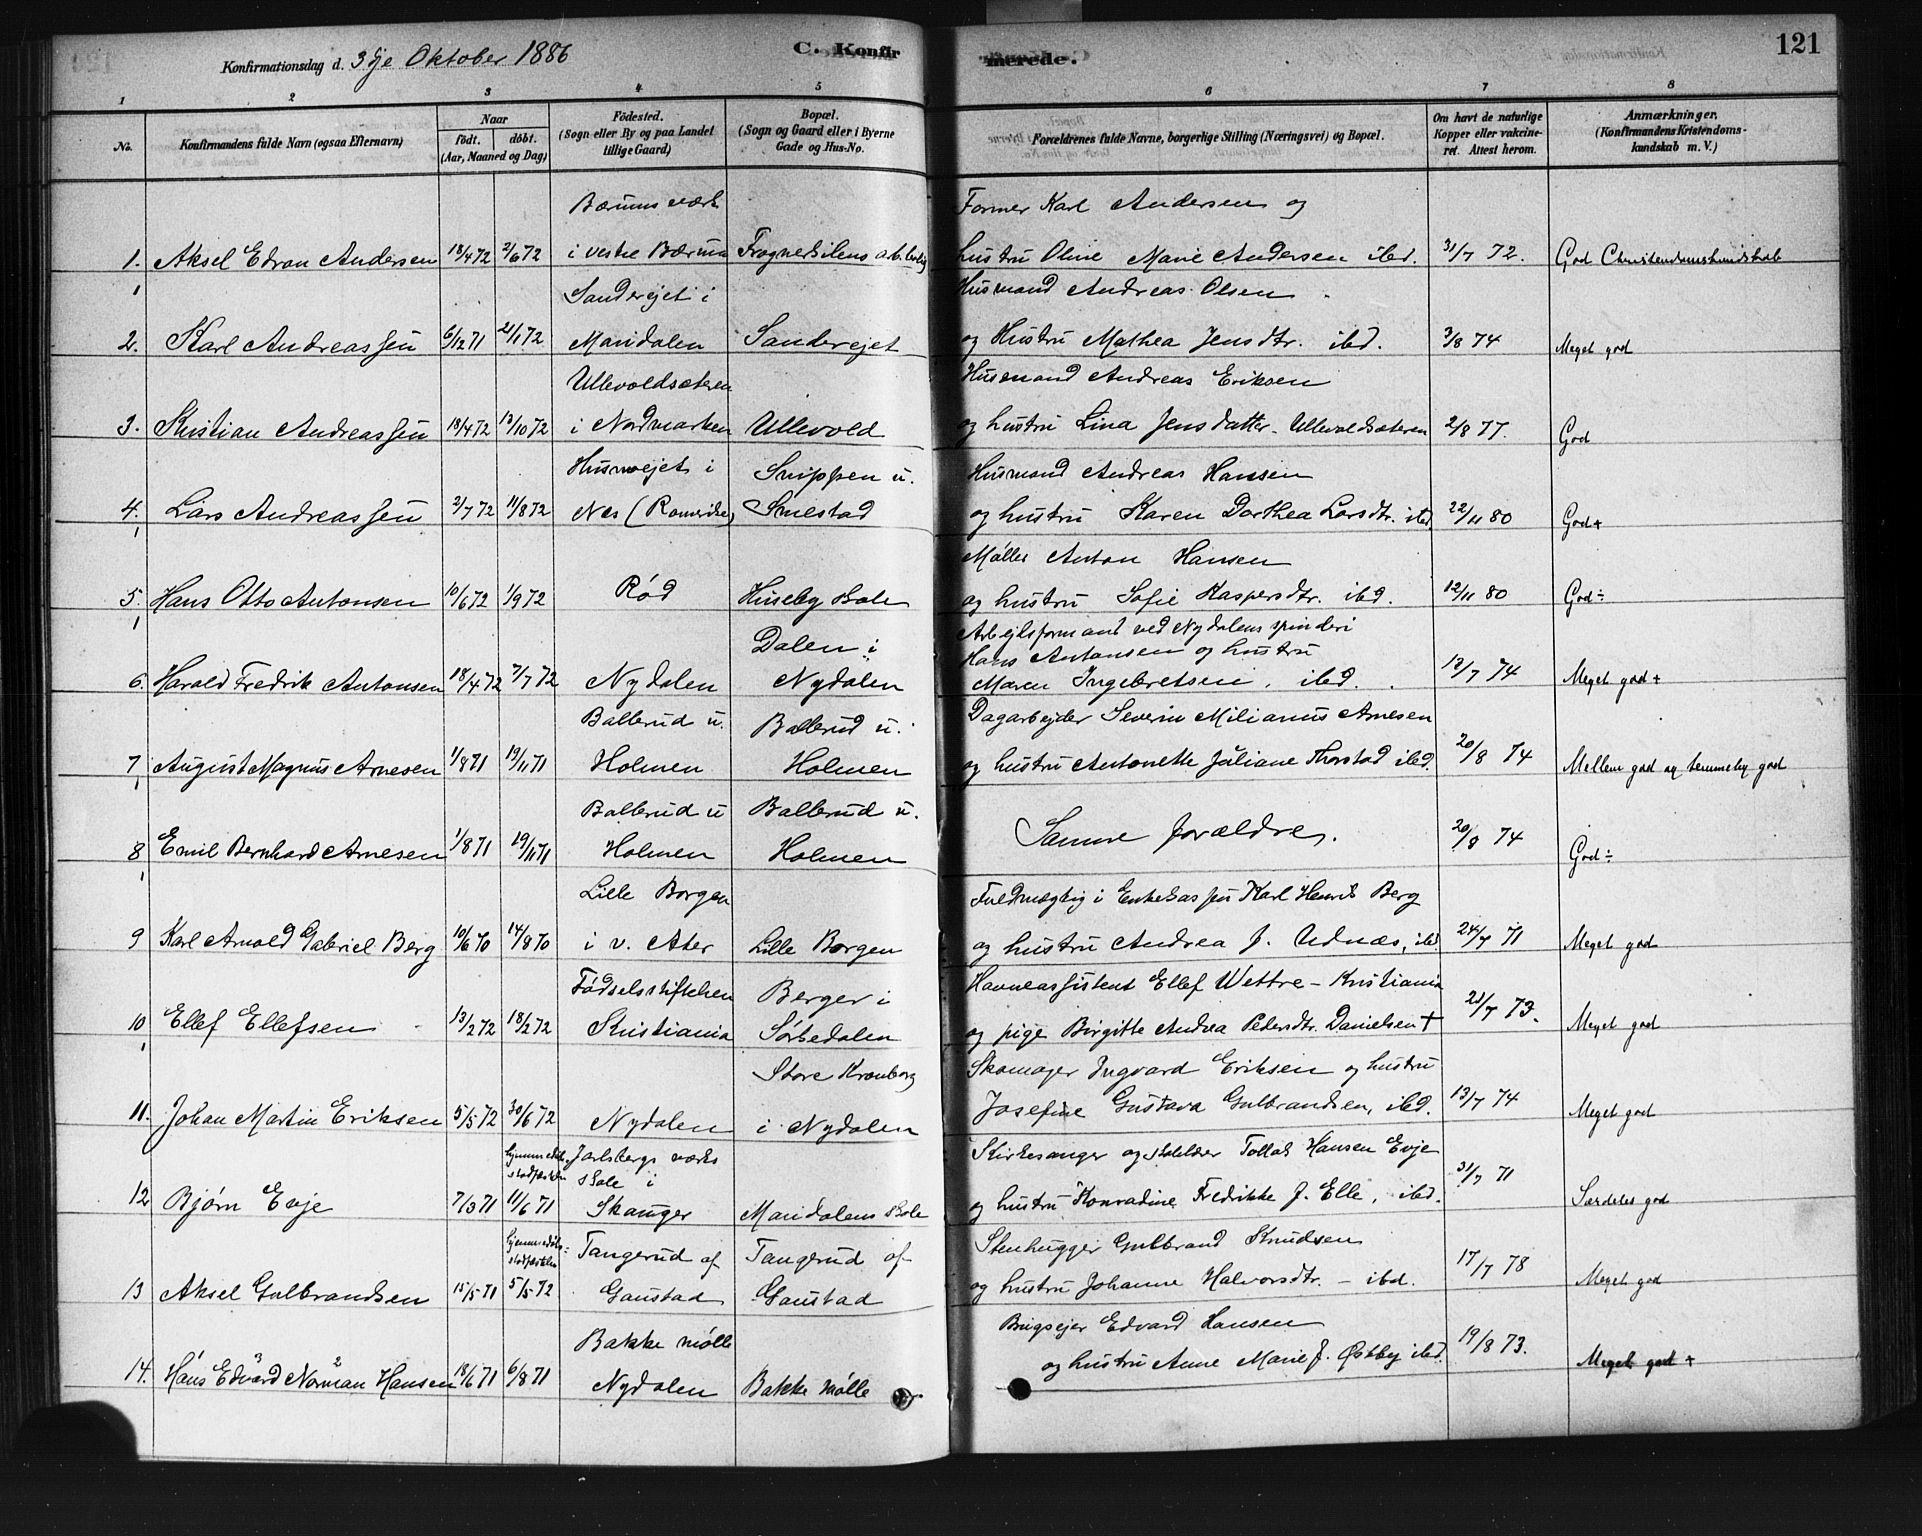 Konfirmationsdag d. 3dje Oktober 1886
C. Konfirmerede.
121
1 2 3 4 5 6 7 8
No.
Konfirmandens fulde Navn (ogsaa Efternavn)
Naar
födt. döbt.
(Aar, Maaned og Dag)
Födested.
(Sogn eller By og paa Landet
tillige Gaard)
Bopæl.
(Sogn og Gaard eller i Byerne
Gade og Hus-No.
Forældrenes fulde Navne, borgerlige Stilling (Næringsvei) og Bopæl.
Om havt de naturlige
Kopper eller vaccine-
ret. Attest herom.
Anmærkninger.
(Konfirmandens Kristendoms-
kundskab m. V.)
Bærums værk Former Karl Andersen og
1. Aksel Edvan Andersen 18/4 72 2/6 72 i vestre Bærum Frognerkilens hustru Oline Marie Andersen ibd. 31/7 72. God Christendomskundskab
Sanderejet i Husmand Andreas Olsen
2. Karl Andreassen 6/12 71 21/1 72 Maridalen Sanderejet og Hustru Mathea Jensdtr. ibd. 3/8 74 Meget god
Ullevoldsæteren Husmand Andreas Eriksen
3. Kristian Andreassen 18/4 72 13/10 72 i Nordmarken Ullevold og hustru Lina Jensdatter - Ullevoldsæteren 2/8 77. God
i Snippen u. Husmand Andreas Hansen
4. Lars Andreassen 2/7 72 11/8 72 Næs (Romerike) Smestad og hustru Karen Dorthea Larsdtr. ibd. 22/11 80 God+
Møller Anton Hansen
5. Hans Otto Antonsen 10/6 72 1/9 72 Röd Huseby Sole og hustru Sofie Kaspersdtr. ibd. 12/11 80 God÷
Dalen i Arbejdsformand ved Nydalens spinderi
Hans Antonsen og hustru
6. Harald Fredrik Antonsen 18/4 72 7/7 72 Nydalen Nydalen Maren Ingebretsen, ibd. 13/7 74 Meget god +
Ballerud u. Ballerud u. Dagarbejder Severin Milianus Arnesen
7 August Magnus Arnesen 1/8 71 19/11 71 Holmen Holmen og hustru Antonette Juliane Thorstad ibd. 20/8 74 Mellem god og temmelig god
Ballerud u Ballerud u.
8 Emil Bernhard Arnesen 1/8 71 19/11 71 Holmen Holmen Samme forældre. 20/8 74 God÷
Lille Borgen Fuldmægtig i Enkekassen Karl Henrik Berg
9 Karl Arnold Gabriel Berg 10/6 70 14/8 70 i v. Aker Lille Borgen og hustru Andrea J. Udnæs, ibd. 24/7 71 Meget god
Födselsstiftelsen Berger i Havneassistent Ellef Wettre - Kristiania
10 Ellef Ellefsen 13/2 72 18/2 72 Kristiania Sörkedalen og pige Birgitte Andrea Pedersdtr. Danielsen + 21/7 73. Meget god
Store Kronborg Skomager Ingvard Eriksen og hustru
11. Johan Martin Eriksen 5/5 72 30/6 72 Nydalen i Nydalen Josefine Gustava Gulbrandsen, ibd. 13/7 74 Meget god
hjemmedöbt stadfæstet Jarlsbergs værks Kirkesanger og skolelærer Tollak Hansen Evje
skole i
12 Bjørn Evje 7/3 71 11/6 71 Skauger Maridalens skole og hustru Konradine Fredrikke J. Elle, ibd. 31/7 71 Særdeles god
hjemmedöbt- Tangerud af Tangerud af Stenhugger Gulbrand Knudsen
13 Aksel Gulbrandsen 15/5 71 5/5 72 Gaustad Gaustad og hustru Johanne Halvorsdtr. - ibd. 17/7 78 Meget god
Bakke mölle Brugsejer Edvard Hansen
14. Hans Edvard Norman Hansen 18/6 71 6/8 71 Nydalen Bakke mölle og hustru Anne Marie J. Østby ibd. 19/8 73. Meget god +